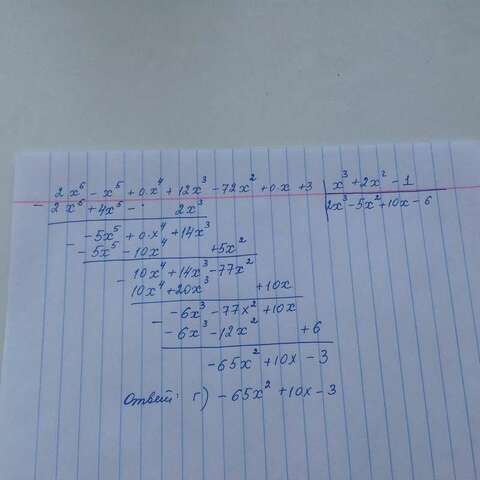 2x⁶ - x⁵ + 0·x⁴ + 12x³ - 72x² + 0·x + 3 | x³ + 2x² - 1
- 2x⁶ + 4x⁵ - · 2x³ | 2x³ - 5x² + 10x - 6
- -5x⁵ + 0·x⁴ + 14x³
-5x⁵ - 10x⁴ + 5x²
- 10x⁴ + 14x³ - 77x²
10x⁴ + 20x³ + 10x
- -6x³ - 77x² + 10x
-6x³ - 12x² + 6
-65x² + 10x - 3
Ответ: г) -65x² + 10x - 3